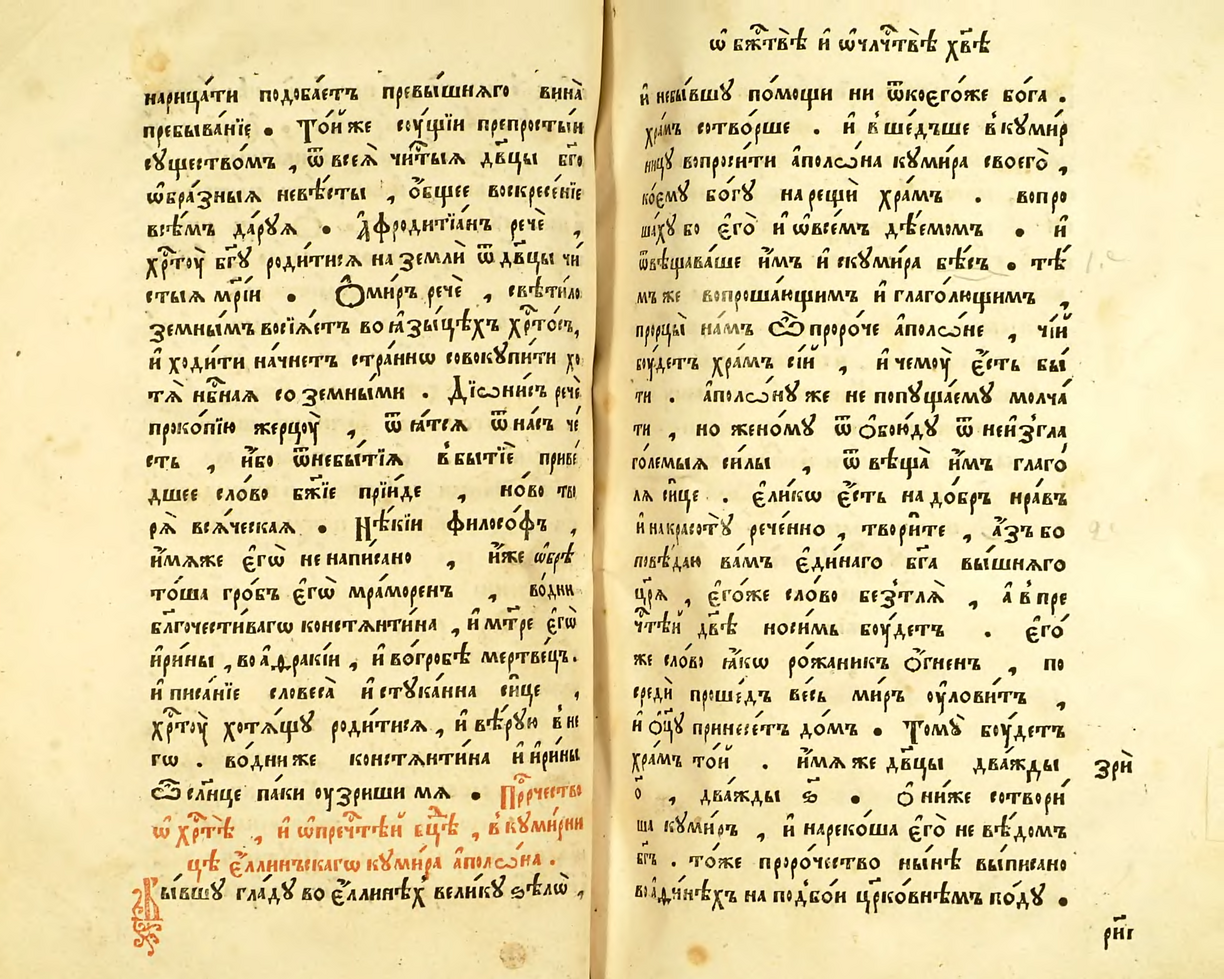 нарица́ти подоба́етъ превы́шнѧго вина̀
пребыва́нїе . То́йже сꙋ́щїи препросты́и
сꙋщество́мъ , ѿ всеѧ̀ чи́тыѧ дв҃цы бг҃о
ѡ҆бра́зныѧ неве́ѣсты , о҆́бщее воскресе́нїе
всѣ́мъ да́рꙋѧ . А҆фродитїа́нъ речѐ ,
хрⷭ҇тоу̀ бг҃ꙋ роди́тисѧ на землѝ ѿ дв҃цы чи
стыѧ мр҃іи . Оми́ръ речѐ , свѣти́ло
земны́мъ возсїѧ́етъ во ꙗ҆зы́цѣхъ хрⷭ҇то́съ,
и҆ ходи́ти начнетъ стра́ннѡ совокꙋпи́ти хо
тѧ̀ нбⷭ҇наѧ со земны́ми . Дїѡни́съ речѐ
проко́пїю жерцоу̀ , ѿ ꙗ҆́тсѧ ѿ на́съ че́
сть , и҆́бо ѿнебытїѧ̀ в̾бытїѐ приве́
дшее сло́во бж҃їе прїи́де , но́во тво
рѧ̀ всѧ́ческаѧ . Нѣ́кїи філосо́фъ ,
и҆́мѧже є҆гѡ̀ не напи́сано , и҆́же ѡ҆брѣ
то́ша гро́бъ є҆гѡ̀ мра́моренъ , во́дни
бл҃гочести́вагѡ констѧнти́на , и҆ мт҃ре є҆гѡ̀
и҆ри́ны , во а҆ѳраки́и , и҆ во́гробѣ мертве́цъ.
и҆ писа́нїе словеса̀ и҆стꙋка́нна си́це ,
хрⷭ҇тоу̀ хотѧ́щꙋ роди́тисѧ , и҆ вѣ́рꙋю в̾не
го . во́дниже констѧнти́на и҆ и҆ри́ны
Ѽ сл҃нце па́ки оу҆́зриши мѧ . Прⷪ҇ро́чество
ѡ҆ хрⷭ҇тѣ̀ , и҆ ѡ҆пречⷭ҇тѣй бц҃ѣ , в̾кꙋми́рни
цѣ є҆́ллиньскагѡ кꙋми́ра а҆полѡ́на .
Бы́вшꙋ гла́дꙋ во є҆́ллинѣхъ вели́кꙋ ѕѣлѡ̀ ,
ѡ҆ бжⷭ҇твѣ̀ и҆ ѡ҆члч҃твѣ̀ хв҃ѣ
и҆ небы́вшꙋ по́мощи ни ѿкоєго́же бо́га .
хра́мъ сотво́рше . и҆ в̾ше́дъше в̾кꙋмир
ницꙋ вопроси́ти а҆полѡ́на кꙋми́ра своего̀ ,
ко́емꙋ бо́гꙋ нарещѝ хра́мъ . вопро
ша́хꙋ бо є҆го̀ и҆ ѡ҆все́мъ дѣ́емомъ . и҆
ѿвѣщава́ше и҆̀мъ и҆скꙋми́ра бѣ́съ . тѣ́
мъ же вопроша́ющимъ и҆ глаго́лющимъ ,
прорцы̀ на́мъ Ѽ проро́че а҆полѡ́не , чі́й
бꙋ́детъ хра́мъ сі́й , и҆ чемоу̀ є҆́сть бы́
ти . а҆полѡ́нꙋ же не попꙋща́емꙋ молча́
ти , но жено́мꙋ ѿ о҆бою́дꙋ ѿ неи҆згла
го́лемыѧ си́лы , ѿвѣща̀ и҆̀мъ глаго́
лѧ си́це . є҆ли́кѡ є҆́сть на до́бръ нра́въ
и҆ накрасотꙋ̀ рече́нно , твори́те , а҆́зъ бо
повѣ́даю ва́мъ є҆ди́наго бг҃а вы́шнѧго
цр҃ѧ , є҆го́же сло́во без̾тлѧ̀ , а҆ в̾ пре
чⷭ҇тѣй дв҃ѣ носи́мь бꙋ́детъ . є҆го́
же сло́во ꙗ҆́кѡ рожа́никъ о҆́гненъ , по
средѝ проше́дъ весь ми́ръ оу҆лови́тъ ,
и҆ о҆ц҃ꙋ̀ принесе́тъ до́мъ . Томꙋ̀ бꙋ́детъ
хра́мъ то́й . и҆́мѧ же дв҃цы два́жды
о҃ , два́жды ѕ҃ . О ни́же сотвори́
ша кꙋми́ръ , и҆ нареко́ша є҆го̀ не вѣ́домъ
бг҃ъ . то́же проро́чество ны́нѣ вы́писано
во а҆ѳи́нѣхъ на по́дбои цр҃ко́внѣмъ по́дꙋ .
Зри̏
рн҃г